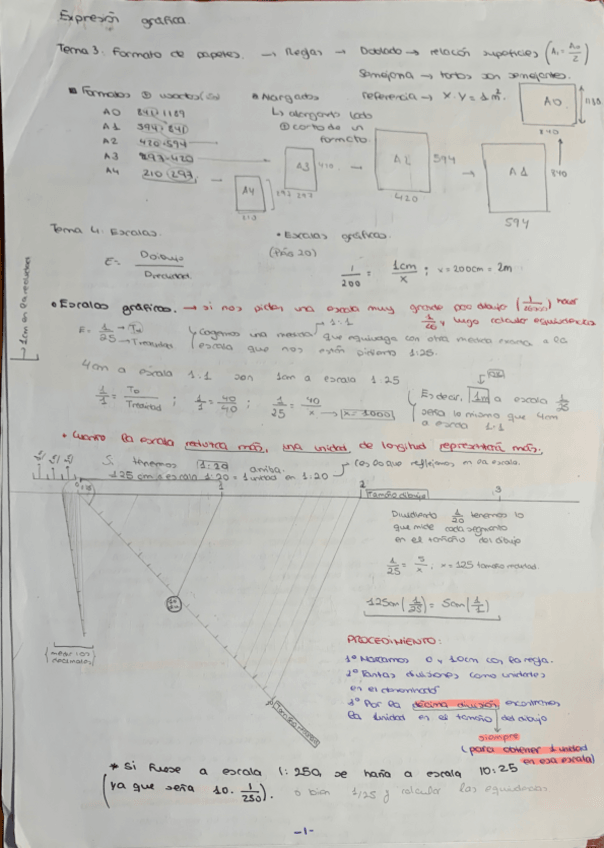 Expresión gráfica.
Tema 3: Formato de papeles. → Reglas → Doblado → relación superficies (A₁ = A₀/2)
Semejanza → todos son semejantes.
Referencia → X·Y = 1 m².
■ Formatos
A0 841×1189
A1 594×841
A2 420×594
A3 297×420
A4 210×297
● Alargados
↳ alargando lado
corto de un
formato
A4
210
297
A3
297
420
A2
420
594
A1
594
840
A0
840
1189
Tema 4. Escalas.
E = Dibujo / Drealidad
• Escalas gráficas.
(Pág 20)
1/200 = 1cm/x ; v = 200cm = 2m
● Escalas gráficas. → si nos piden una escala muy grande por abajo
1/25 → TD → Trealidad
Cogemos una medida que equivalga con otra medida
escala que nos están pidiendo 1:25.
→ 1:1
4cm a escala 1:1 son 1cm a escala 1:25
1/1 = TD/Trealidad ; 1/1 = 40/40 ; 1/25 = 40/x → x = 1000
Es decir, 1m a escala 1/25
sería lo mismo que 4cm
a escala 1:1
• Cuanto la escala reduzca más, una unidad de longitud representará más.
Si tenemos 1:20 arriba.
125 cm a escala 1:20 = 1 unidad en 1:20
0
1
2
3
Tamaño dibujo
Dividiendo 1/20 tenemos lo
que mide cada segmento
en el tamaño del dibujo
1/25 = 5/x ; x = 125 tamaño realidad.
125cm (1/25) = 5cm (1/1)
PROCEDIMIENTO:
1º Marcamos 0 y 10cm con la regla.
2º Tantas divisiones como unidades
en el denominador
3º Por la décima división encontramos
la unidad en el tamaño del dibujo
siempre
(para obtener 1 unidad
en esa escala)
* Si fuese a escala 1:250, se haría a escala 10:25
(ya que sería 10 · 1/250). o bien 1/25 y calcular las equivalencias
-1-